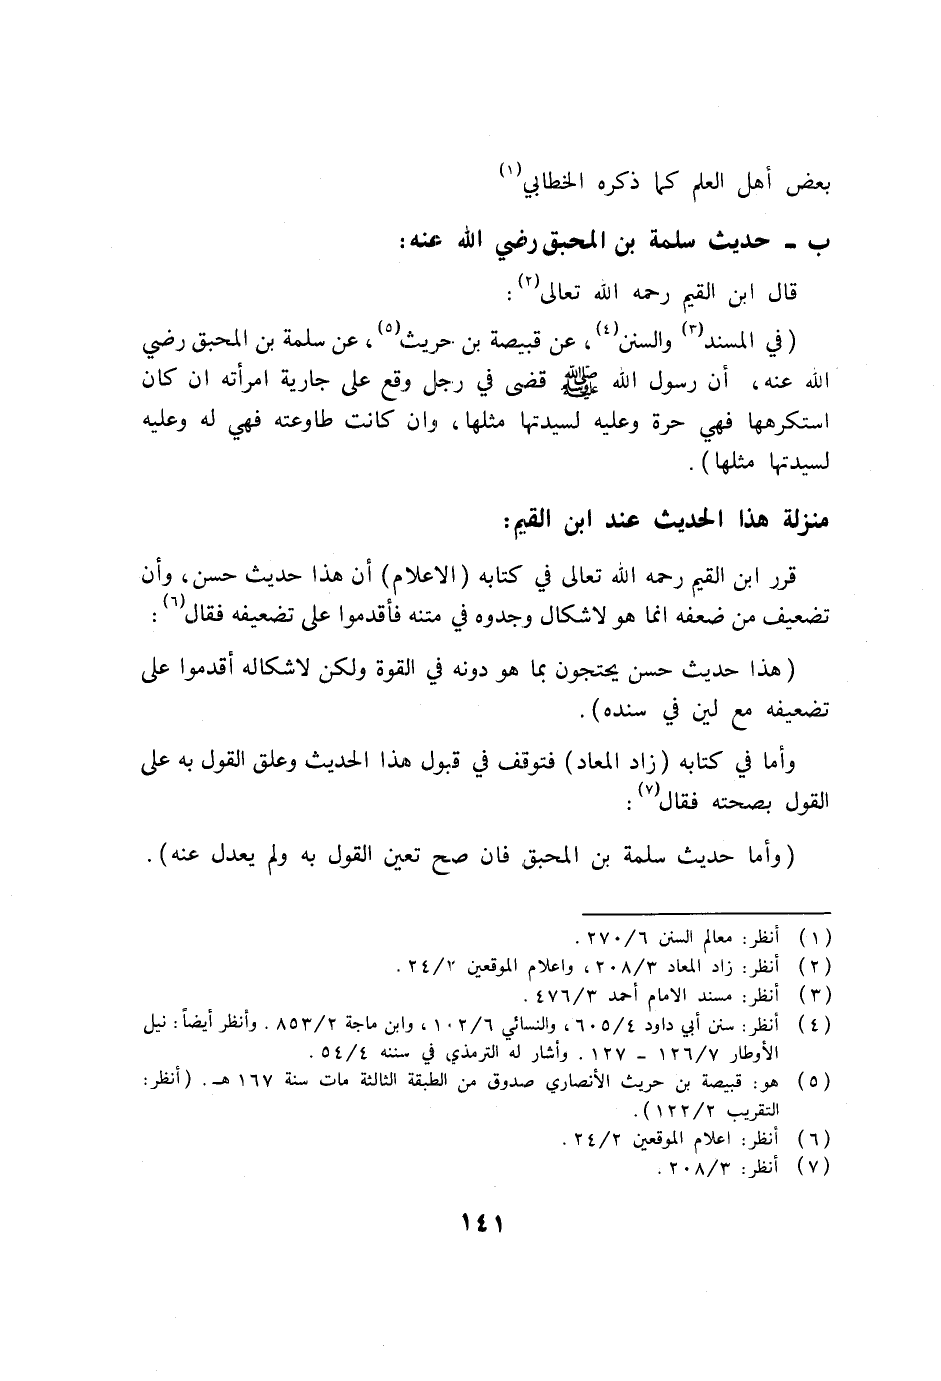 بعض أهل العلم كما ذكره الخطابي(١)
ب ـ حديث سلمة بن المحبق رضي الله عنه:
قال ابن القيم رحمه الله تعالى(٢):
(في المسند(٣) والسنن(٤)، عن قبيصة بن حريث(٥)، عن سلمة بن المحبق رضي
الله عنه، أن رسول الله ﷺ قضى في رجل وقع على جارية امرأته ان كان
استكرهها فهي حرة وعليه لسيدتها مثلها، وان كانت طاوعته فهي له وعليه
لسيدتها مثلها).
منزلة هذا الحديث عند ابن القيم:
قرر ابن القيم رحمه الله تعالى في كتابه (الاعلام) أن هذا حديث حسن، وأن
تضعيف من ضعفه انما هو لاشكال وجدوه في متنه فأقدموا على تضعيفه فقال(٦):
(هذا حديث حسن يحتجون بما هو دونه في القوة ولكن لاشكاله أقدموا على
تضعيفه مع لين في سنده).
وأما في كتابه (زاد المعاد) فتوقف في قبول هذا الحديث وعلق القول به على
القول بصحته فقال(٧):
(وأما حديث سلمة بن المحبق فان صح تعين القول به ولم يعدل عنه).
(١) أنظر: معالم السنن ٢٧٠/٦.
(٢) أنظر: زاد المعاد ٢٠٨/٣، واعلام الموقعين ٢٤/٢.
(٣) أنظر: مسند الامام أحمد ٤٧٦/٣.
(٤) أنظر: سنن أبي داود ٦٠٥/٤، والنسائي ١٠٢/٦، وابن ماجة ٨٥٣/٢. وأنظر أيضاً: نيل
الأوطار ١٢٦/٧ ـ ١٢٧. وأشار له الترمذي في سننه ٥٤/٤.
(٥) هو: قبيصة بن حريث الأنصاري صدوق من الطبقة الثالثة مات سنة ١٦٧ هـ. (أنظر:
التقريب ١٢٢/٢).
(٦) أنظر: اعلام الموقعين ٢٤/٢.
(٧) أنظر: ٢٠٨/٣.
١٤١